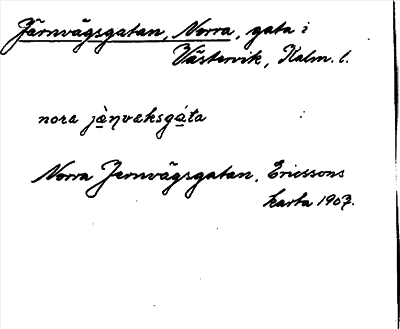 Järnvägsgatan, Norra, gata i
Västervik, Kalm. l.
nora jæ̀ṇvæksgáta
Norra Jernvägsgatan, Ericssons
karta 1907.